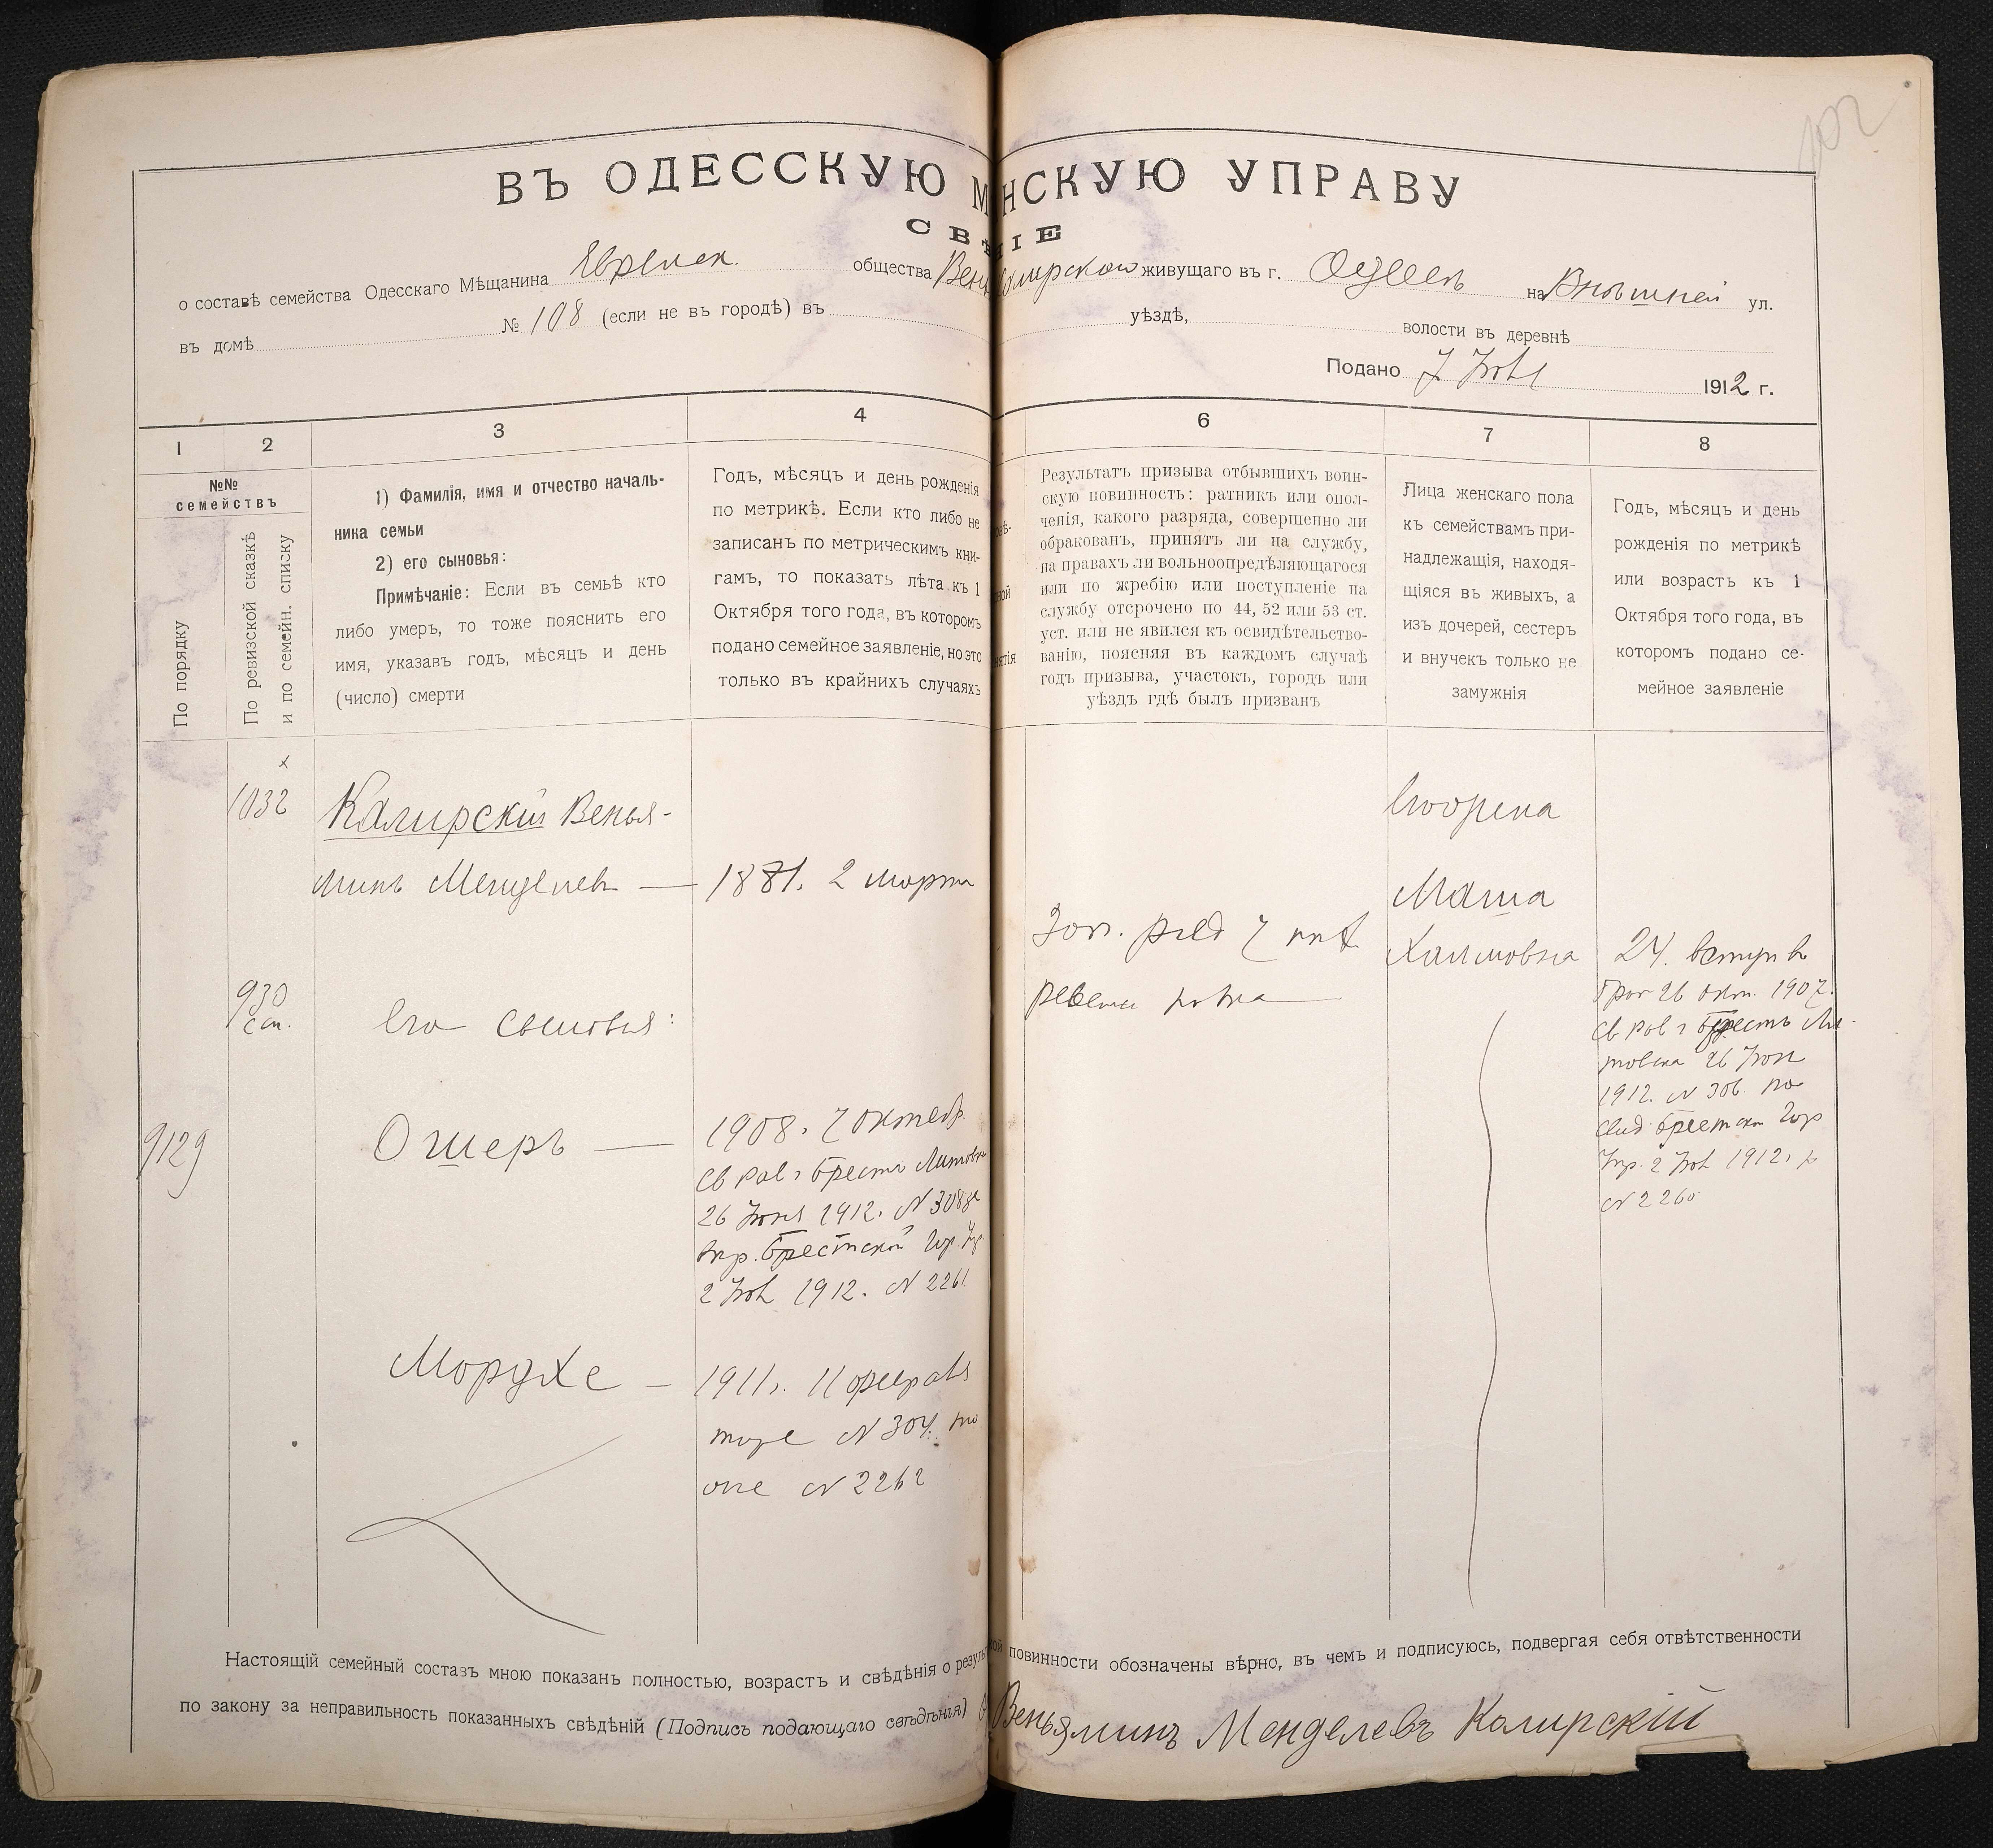 102
ВЪ ОДЕССКУЮ М НСКУЮ УПРАВУ
СВѢ ІЕ
о составѣ семейства Одесскаго Мѣщанина Еврейск. общества живущаго въ г. Одессѣ на Внѣшней ул.
въ домѣ № 108 (если не въ городѣ) въ уѣздѣ, волости въ деревнѣ
Подано 7 1912 г.
1 2 3 4 6 7 8
№№
семействъ
По порядку
По ревизской сказкѣ
и по семейн. списку
1) Фамилія, имя и отчество началь-
ника семьи
2) его сыновья:
Примѣчаніе: Если въ семьѣ кто
либо умеръ, то тоже пояснить его
имя, указавъ годъ, мѣсяцъ и день
(число) смерти
Годъ, мѣсяцъ и день рожденія
по метрикѣ. Если кто либо не
записанъ по метрическимъ кни-
гамъ, то показать лѣта къ 1
Октября того года, въ которомъ
подано семейное заявленіе, но это
только въ крайнихъ случаяхъ
Результатъ призыва отбывшихъ воин-
скую повинность: ратникъ или опол-
ченія, какого разряда, совершенно ли
обракованъ, принятъ ли на службу,
на правахъ ли вольноопредѣляющагося
или по жребію или поступленіе на
службу отсрочено по 44, 52 или 53 ст.
уст. или не явился къ освидѣтельство-
ванію, поясняя въ каждомъ случаѣ
годъ призыва, участокъ, городъ или
уѣздъ гдѣ былъ призванъ
Лица женскаго пола
къ семействамъ при-
надлежащія, находя-
щіяся въ живыхъ, а
изъ дочерей, сестеръ
и внучекъ только не
замужнія
Годъ, мѣсяцъ и день
рожденія по метрикѣ
или возрастъ къ 1
Октября того года, въ
которомъ подано се-
мейное заявленіе
1032 Калирскій Венья-
минъ Менделевъ — 1881. 2 марта
930
сп.
Его сыновья:
9129 Ошеръ — 1908. 7 октяб.
Св рав г Брестъ Литовск
26 Іюня 1912. N 308
Брестской Гор Упр
2 1912. N 2261.
Мордхе — 1911. 11 февраля
тоже N 304. по
оне N 2262
Маша
Хаимовна
24. вступ въ
брак 26 окт. 1907.
Св рав г Брестъ Ли-
товска 26 Іюн
1912. N 306. по
Брестск Гор
Упр. 2 1912.
N 2260
Настоящій семейный составъ мною показанъ полностью, возрастъ и свѣдѣнія о резуль повинности обозначены вѣрно, въ чемъ и подписуюсь, подвергая себя отвѣтственности
по закону за неправильность показанныхъ свѣдѣній (Подпись подающаго свѣдѣнія) Веньяминъ Менделевъ Калирскій